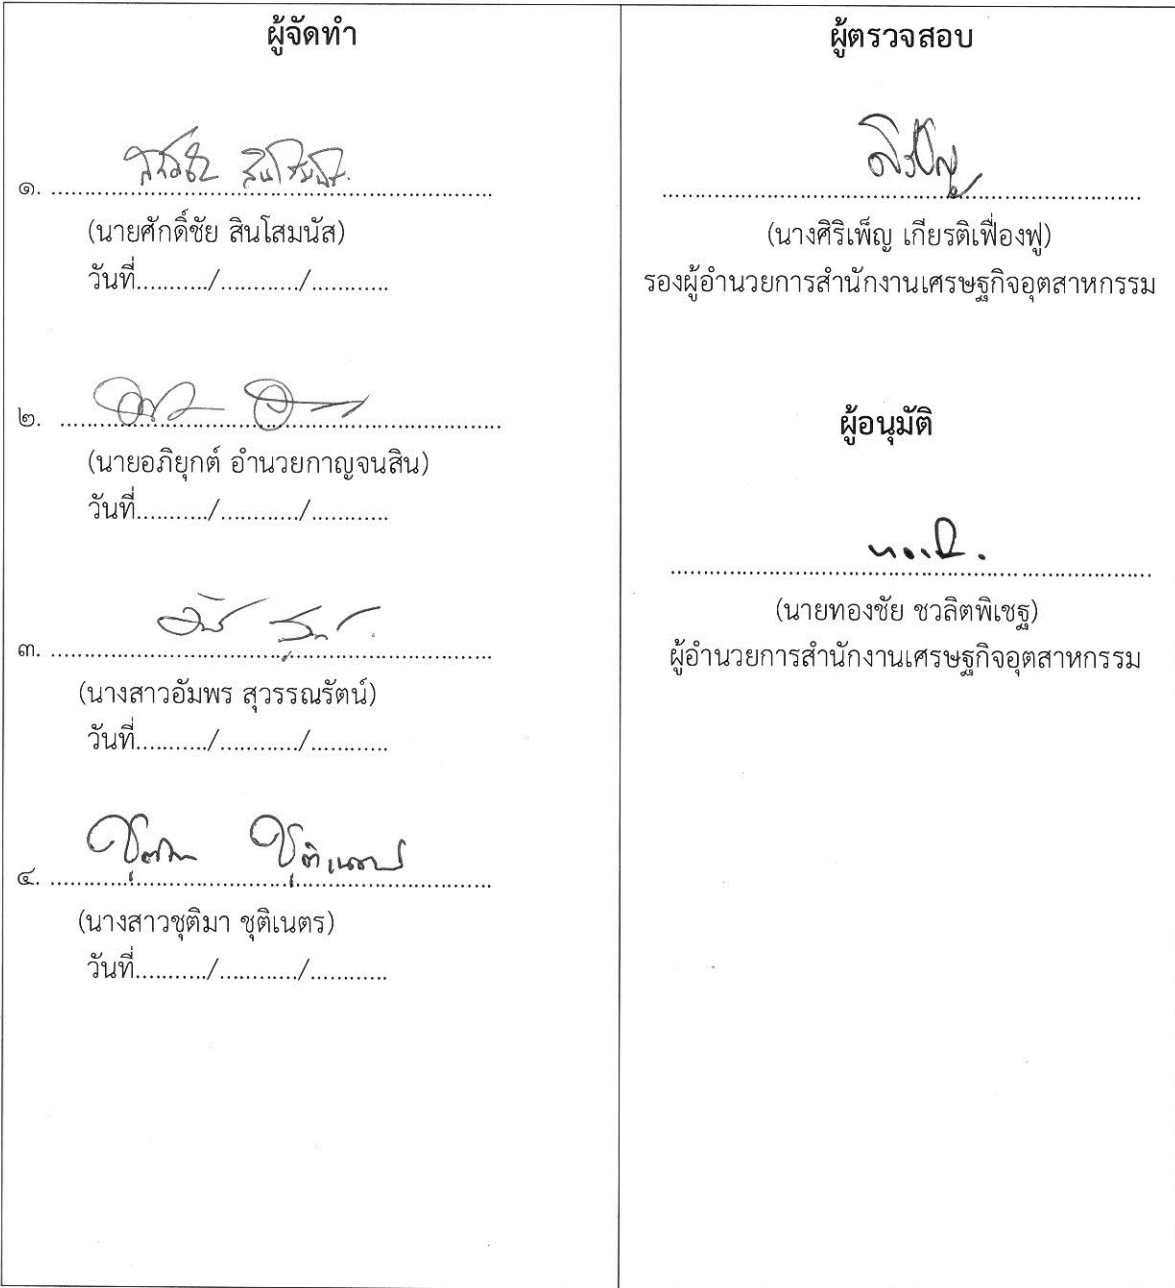 ผู้จัดทำ
๑. ................................................................
(นายศักดิ์ชัย สินโสมนัส)
วันที่.........../............/............
๒. ................................................................
(นายอภิยุกต์ อำนวยกาญจนสิน)
วันที่.........../............/............
๓. ................................................................
(นางสาวอัมพร สุวรรณรัตน์)
วันที่.........../............/............
๔. ................................................................
(นางสาวชุติมา ชุติเนตร)
วันที่.........../............/............
ผู้ตรวจสอบ
(นางศิริเพ็ญ เกียรติเฟื่องฟู)
รองผู้อำนวยการสำนักงานเศรษฐกิจอุตสาหกรรม
ผู้อนุมัติ
(นายทองชัย ชวลิตพิเชฐ)
ผู้อำนวยการสำนักงานเศรษฐกิจอุตสาหกรรม